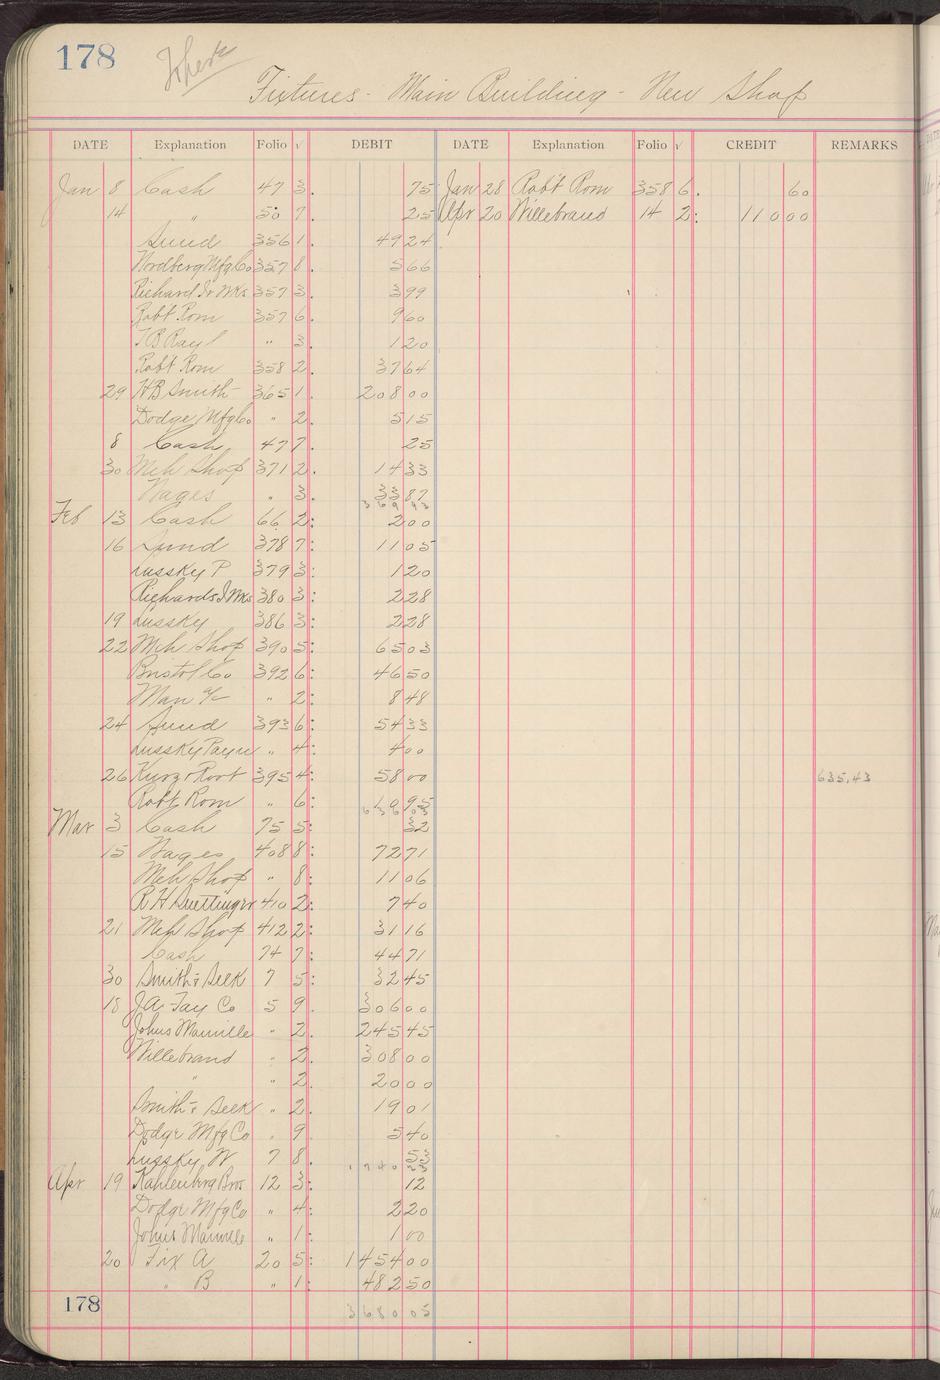 178
Fixtures - Main Building - New Shop
DATE Explanation Folio √ DEBIT DATE Explanation Folio √ CREDIT REMARKS
Jan 8 Cash 47 3. 75 Jan 28 Robt Rom 358 6. 60
14 " 50 7. 25 Apr 20 Willebrand 14 2: 110 00
Sund 356 1. 49 24
Nordberg Mfg Co 357 8. 5 66
Richard Ir Wks 357 3. 3 99
Robt Rom 357 6. 9 60
T B Rayl " 3. 1 20
Robt Rom 358 2. 37 64
29 H B Smith 365 1. 208 00
Dodge Mfg Co " 2. 5 15
8 Cash 47 7. 25
30 Mch Shop 371 2. 14 33
Wages " 3. 33 87
369 93
Feb 13 Cash 66 2: 2 00
16 Sund 378 7: 11 05
Lussky P 379 3: 1 20
Richards I Wks 380 3: 2 28
19 Lussky 386 3: 2 28
22 Mch Shop 390 5: 65 03
Bristol Co 392 6: 46 50
Man a/c " 2: 8 48
24 Sund 393 6: 54 33
Lussky Payn " 4: 4 00
26 Kurz & Root 395 4: 58 00 635.43
Robt Rom " 6: 10 95
636 03
Mar 3 Cash 75 5: 32
15 Wages 408 8: 72 71
Mch Shop " 8: 11 06
R H Suettinger 410 2: 7 40
21 Mch Shop 412 2: 31 16
Cash 74 7: 44 71
30 Smith & Selk 7 5: 32 45
18 J. A. Fay Co 5 9. 306 00
Johns Manville " 2. 245 45
Willebrand " 2. 308 00
" " 2. 20 00
Smith & Selk " 2. 19 01
Dodge Mfg Co " 9. 5 40
Lussky W 7 8. 53
1740 23
Apr 19 Kahlenberg Bros 12 3: 12
Dodge Mfg Co " 4: 2 20
Johns Manville " 1: 1 00
20 Fix A 20 5: 1454 00
" B " 1: 482 50
178 3680 05